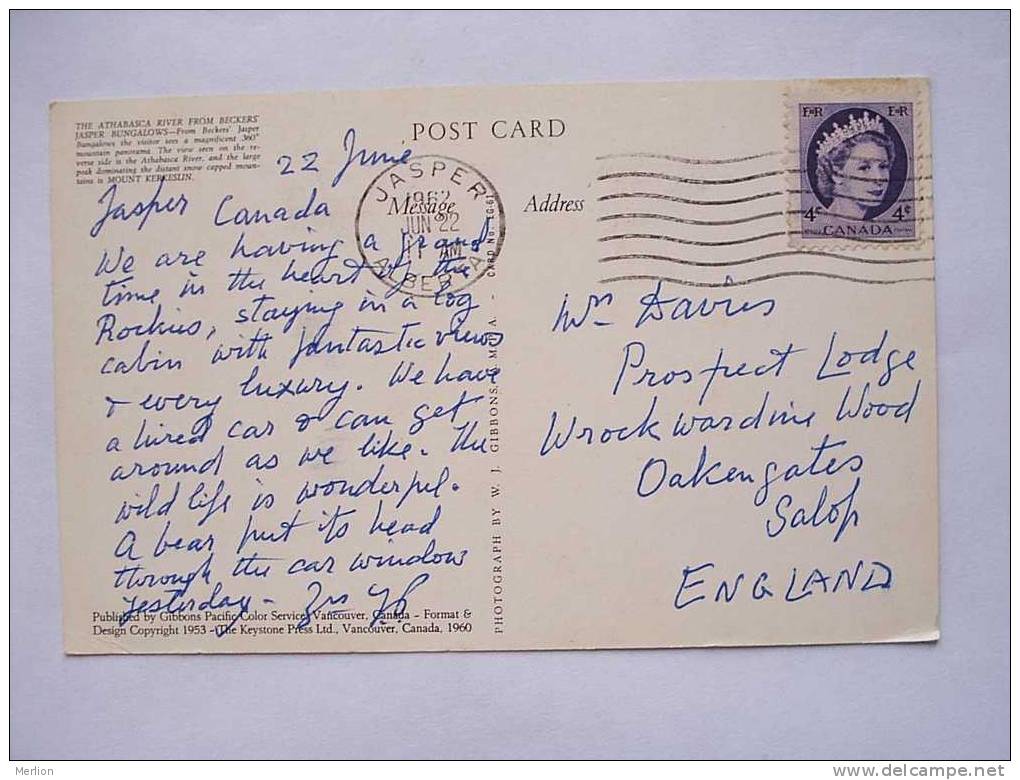 THE ATHABASCA RIVER FROM BECKERS'
JASPER BUNGALOWS—From Beckers' Jasper
Bungalows the visitor sees a magnificent 360°
mountain panorama. The view seen on the re-
verse side is the Athabasca River, and the large
peak dominating the distant snow capped moun-
tains is MOUNT KERKESLIN.
POST CARD
Message
Address
22 June
Jasper Canada
We are having a grand
time in the heart of the
Rockies, staying in a log
cabin with fantastic views
& every luxury. We have
a hired car & can get
around as we like. The
wild life is wonderful.
A bear put its head
through the car window
yesterday -
Published by Gibbons Pacific Color Service, Vancouver, Canada - Format &
Design Copyright 1953 - The Keystone Press Ltd., Vancouver, Canada, 1960
PHOTOGRAPH BY W. J. GIBBONS, M.P.A. - CARD No. CG-61
JASPER
1962
JUN 22
AM
ALBERTA
E II R E II R
4c 4c
CANADA
POSTES POSTAGE
Mrs Davies
Prospect Lodge
Wrockwardine Wood
Oakengates
Salop
ENGLAND
Merlion
www.delcampe.net